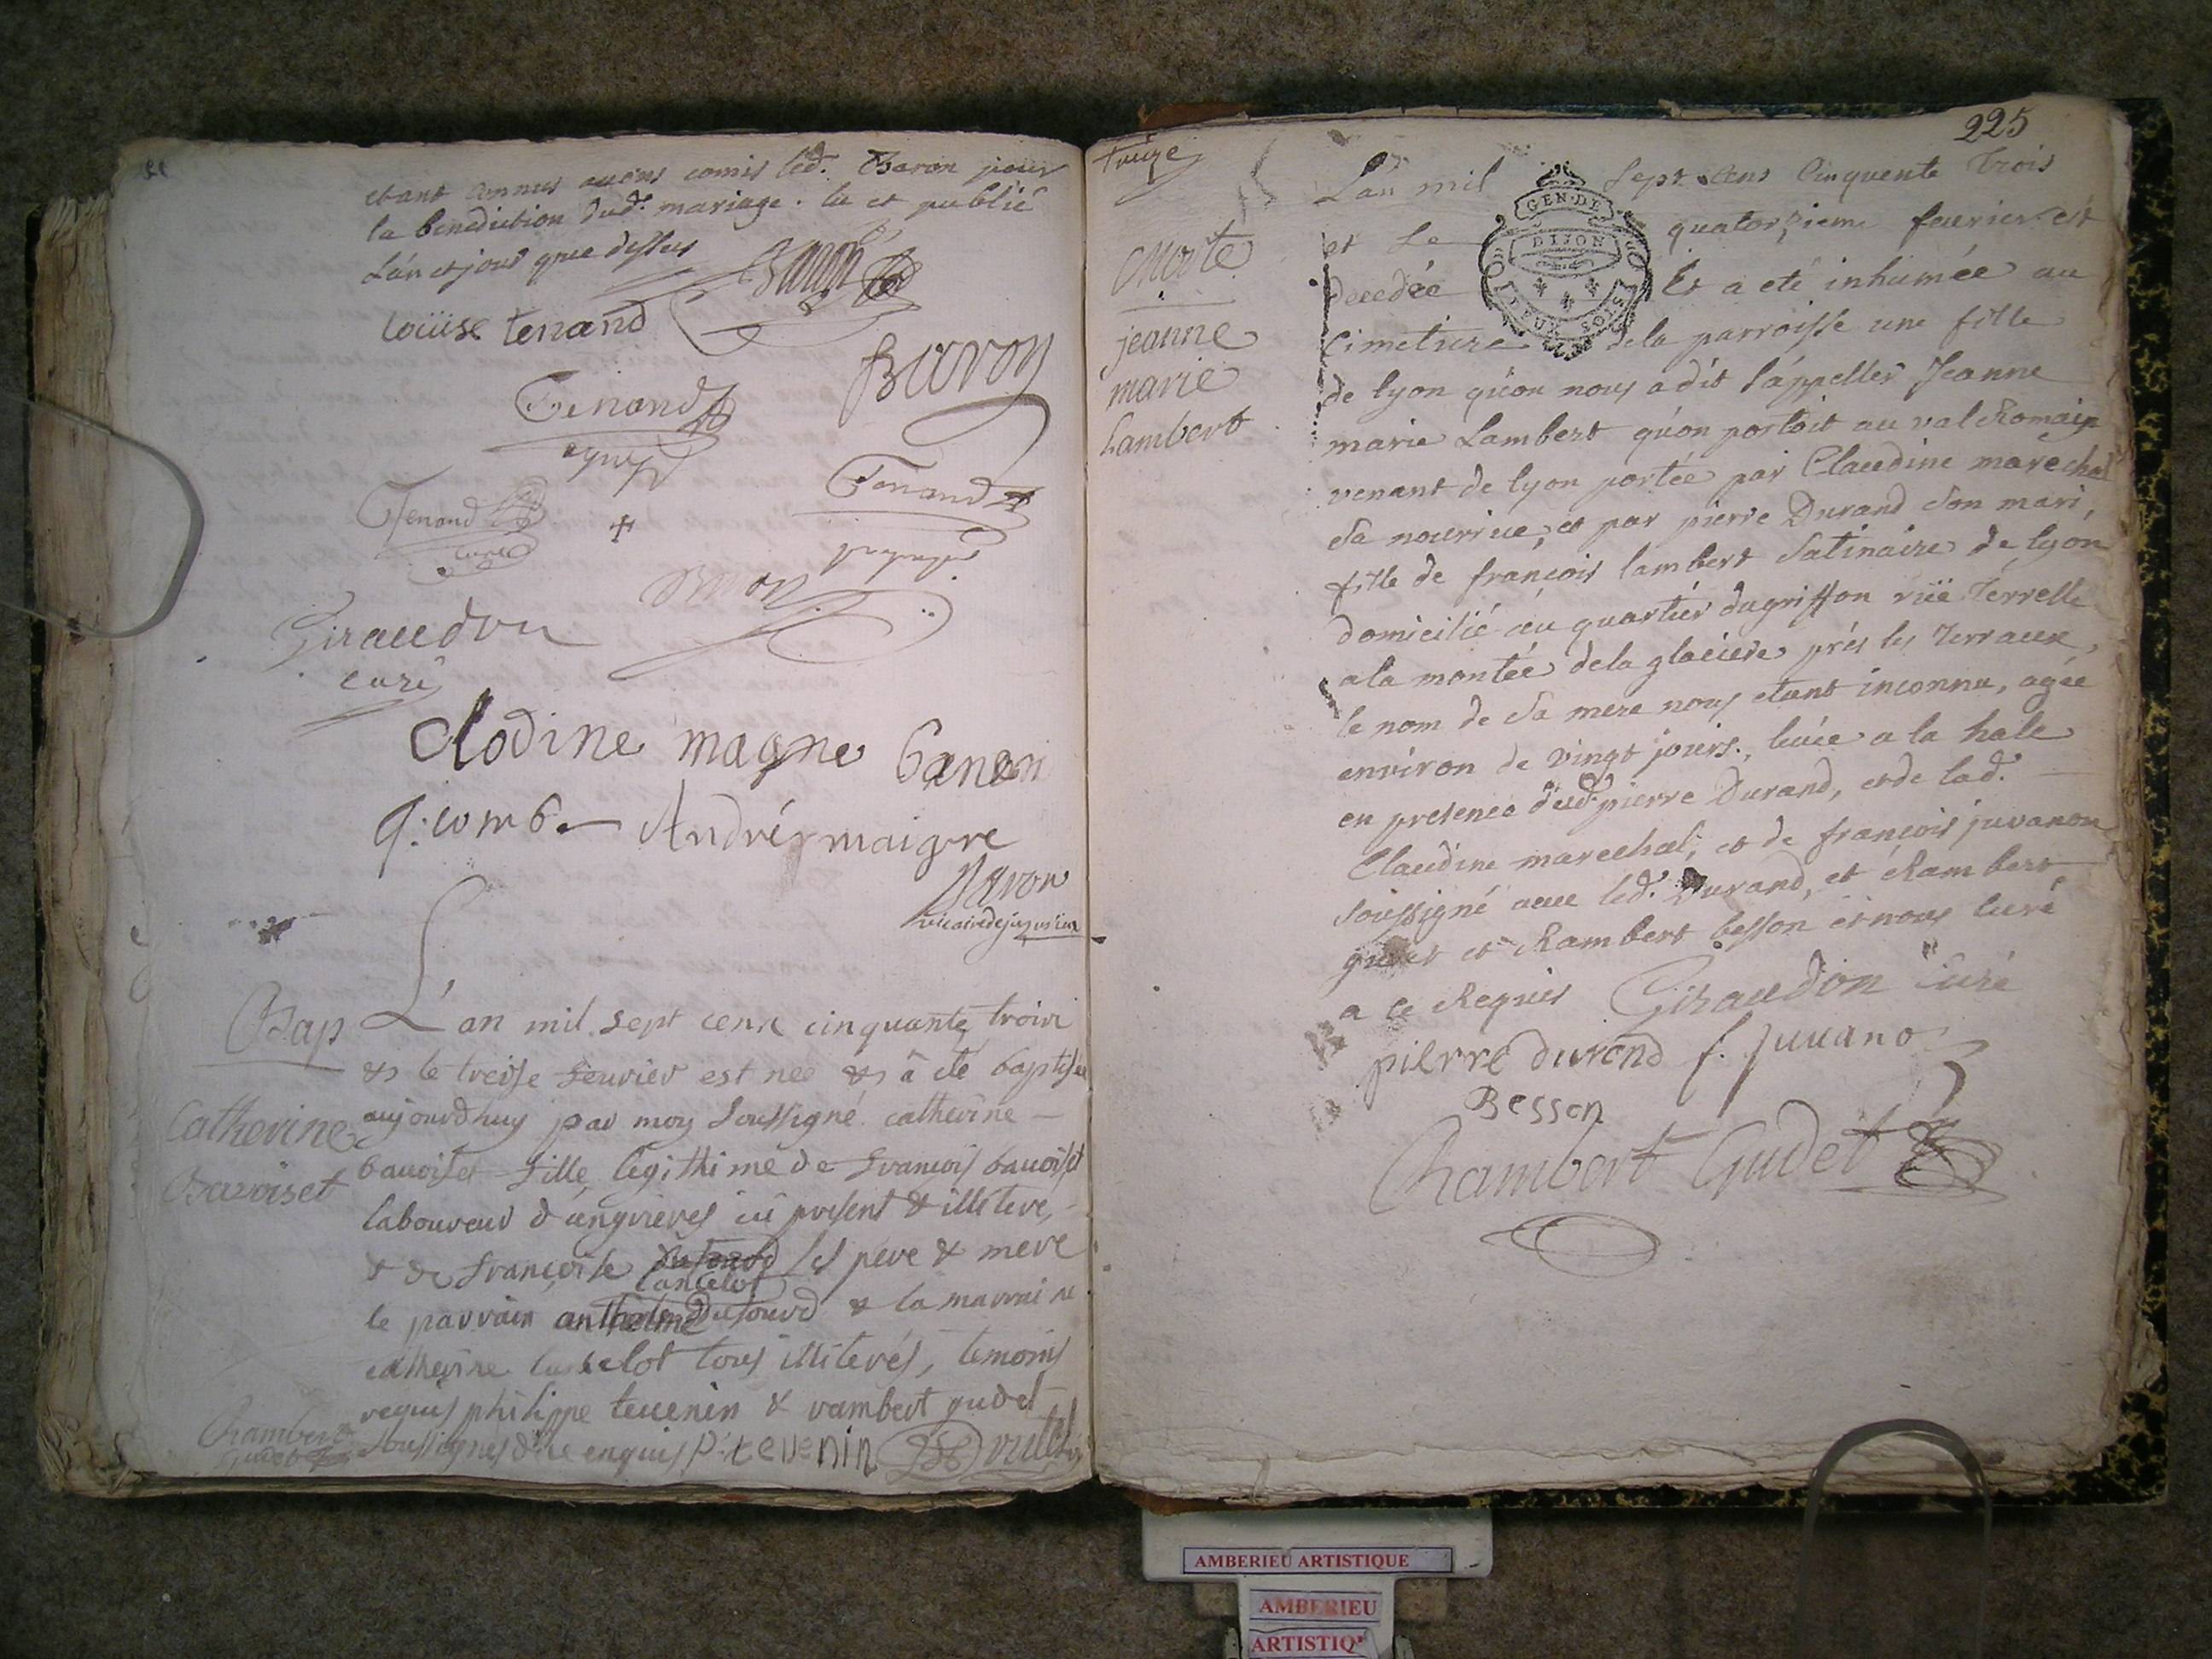 etant connus avons comis led. Baron pour
la benediction dud. mariage. lu et publié
L'an et jour que dessus
Baron
loüise tenand
Baron
Tenand
Tenand
curé
Tenand
Giraudon
curé
Clodine magne
Andrér maigre
Baron
vicaire de jujurieux
Bap
Catherine
Bavoiset
L'an mil sept cens cinquante trois
& le treise fevrier est née & â été baptisée
aujourdhuy par moy soussigné catherine
bavoiset fille legithime de françois bavoiset
laboureur d'angrieres ici present & illiteré,
& de françoise lancelot ses pere & mere
le parrain anthelme dufourd & la marraine
catherine lancelot tous illiterés, temoins
requis philippe tevenin & rambert gudet
soussignés de ce enquis P. tevenin
Chambert
gudet
225
treize
Morte
jeanne
marie
Lambert
GEN. DE
DIJON
L'an mil sept cens Cinquente Trois
et Le quatorzieme fevrier est
decedée Et a eté inhumée au
Cimetiere dela parroisse une fille
de lyon qu'on nous a dit s'appeller Jeanne
marie Lambert qu'on portoit au val Romain
venant de lyon portée par Claudine marechal
Sa nourrice, et par pierre Durand Son mari,
fille de françois lambert Satinaire de lyon
domicilié au quartier dugriffon rüe Terrelle
ala montée dela glaciere prés les Terraux,
le nom de Sa mere nous etant inconnu, agée
environ de vingt jours, levée a la hale
en presence dud. pierre Durand, et de lad.
Claudine marechal, et de françois juvanon
soussigné avec led. Durand, et Rambert
gudet et Rambert besson et nous curé
a ce Requis Giraudon curé
pierre durand f. juuano
Besson
Chambert Gudet
AMBERIEU ARTISTIQUE
AMBERIEU
ARTISTIQ